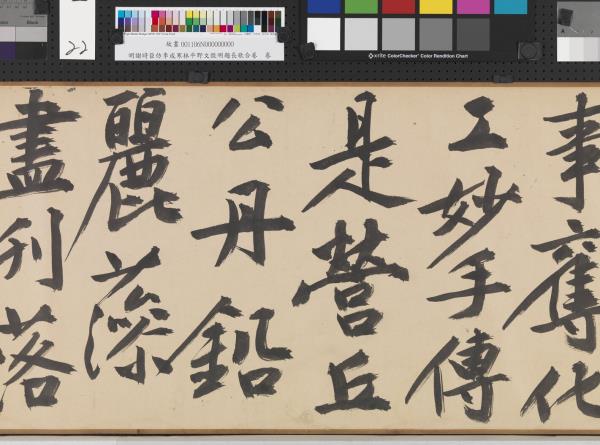 2-2
Black
故畫 001106N000000000
明謝時臣仿李成寒林平野文徵明題長歌合卷 卷
x-rite ColorChecker® Color Rendition Chart
事奪化
工妙手傳
是營丘
公丹鉛
麗藻
盡刊落